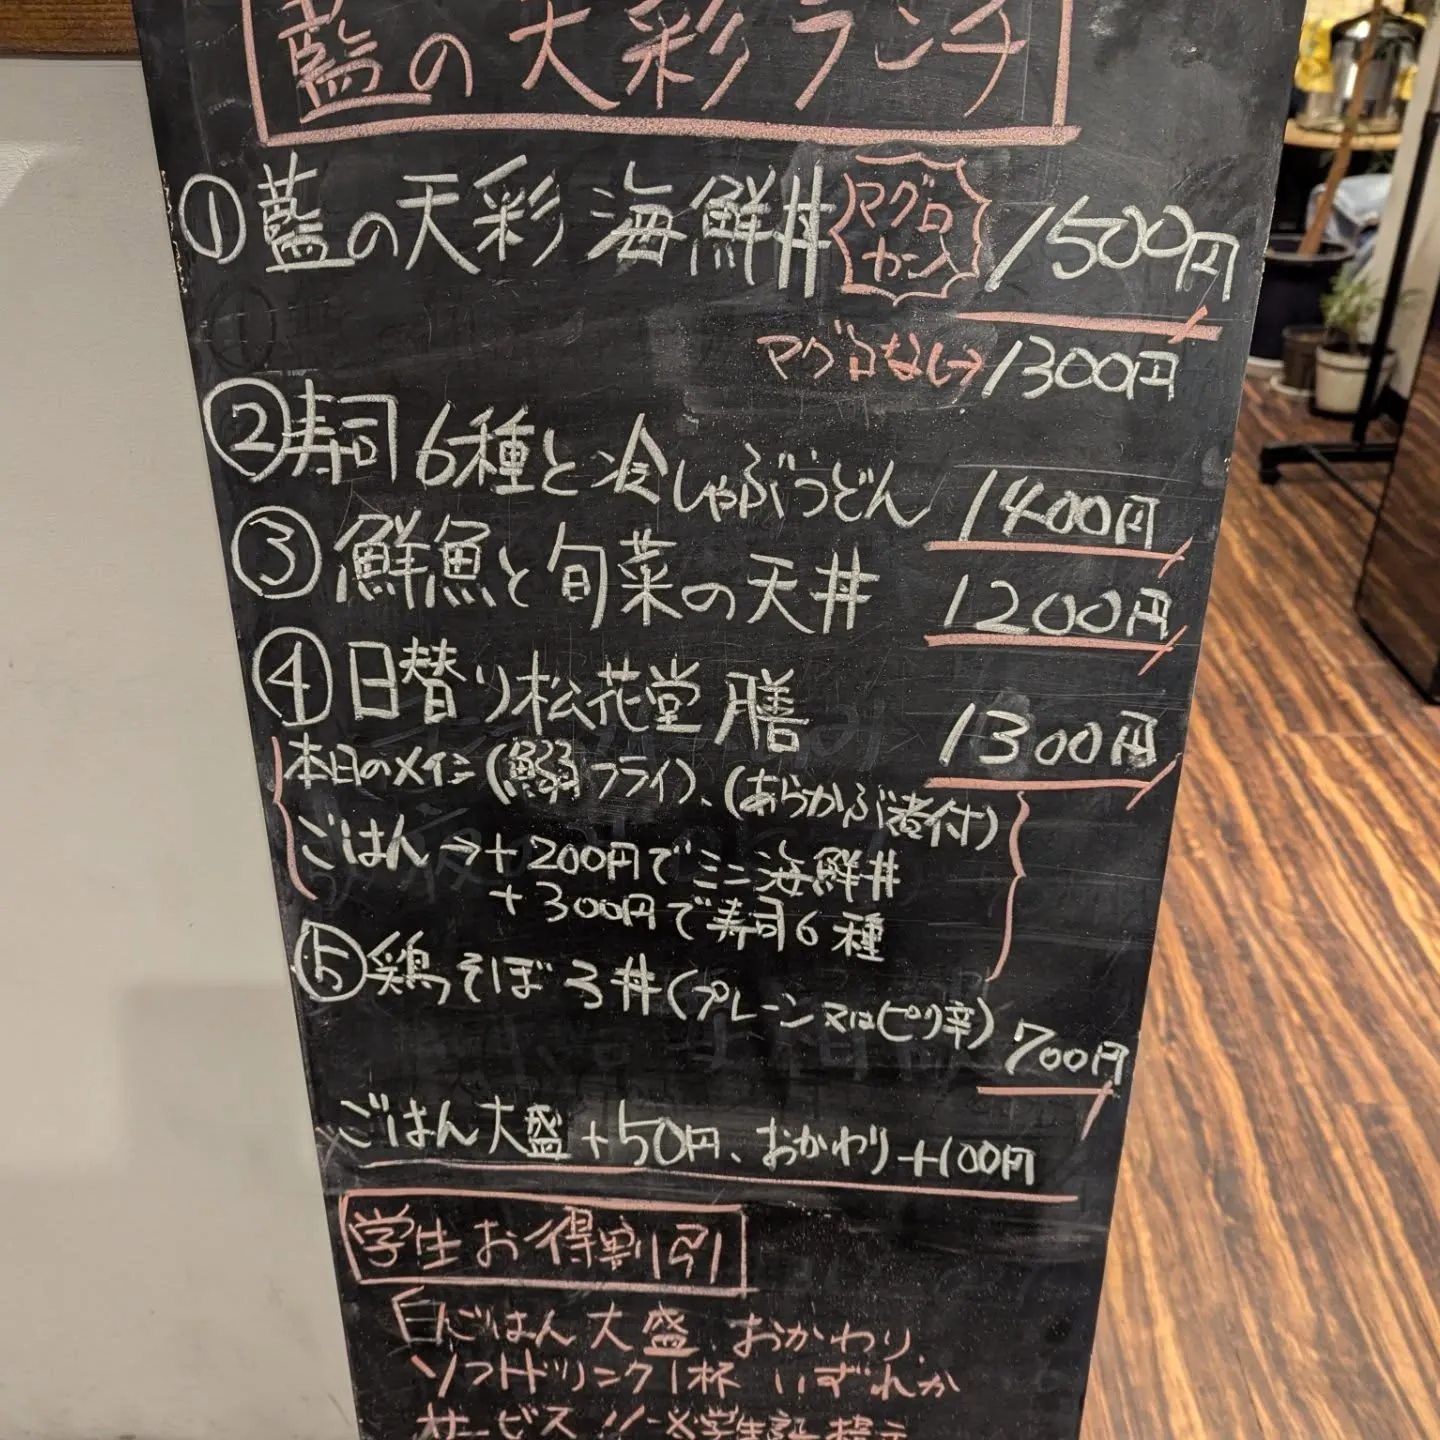 藍の天彩ランチ
①藍の天彩海鮮丼 マグロカーン 1500円
マグロなし→1300円
②寿司6種と冷しゃぶうどん 1400円
③鮮魚と旬菜の天丼 1200円
④日替り松花堂膳 1300円
本日のメイン(鰯フライ)、(あらかぶ煮付)
ごはん→+200円でミニ海鮮丼
+300円で寿司6種
⑤鶏そぼろ丼(プレーン又はピリ辛) 700円
ごはん大盛+50円、おかわり+100円
学生お得割引
白ごはん大盛、おかわり、
ソフトドリンク1杯 いずれか
サービス!! ※学生証提示